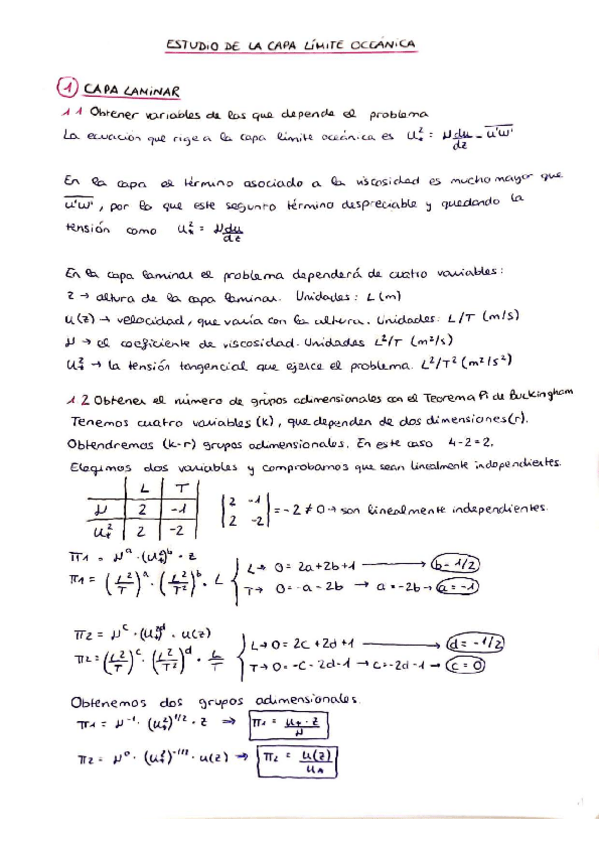 ESTUDIO DE LA CAPA LÍMITE OCEÁNICA
1 CAPA LAMINAR
1 1 Obtener variables de las que depende el problema
La ecuación que rige a la capa límite oceánica es u*² = ν du/dz - u'w'
En la capa el término asociado a la viscosidad es mucho mayor que
u'w', por lo que este segunto término despreciable y quedando la
tensión como u*² = ν du/dz
En la capa laminar el problema dependerá de cuatro variables:
z → altura de la capa laminar. Unidades: L (m)
u(z) → velocidad, que varía con la altura. Unidades: L/T (m/s)
ν → el coeficiente de viscosidad. Unidades L²/T (m²/s)
u*² → la tensión tangencial que ejerce el problema. L²/T² (m²/s²)
1 2 Obtener el número de grupos adimensionales con el Teorema Pi de Buckingham
Tenemos cuatro variables (k), que dependen de dos dimensiones (r).
Obtendremos (k-r) grupos adimensionales. En este caso 4-2=2.
Elegimos dos variables y comprobamos que sean linealmente independientes.
L T
ν 2 -1
u*² 2 -2
|2 -1|
|2 -2| = -2 ≠ 0 → son linealmente independientes.
π1 = ν^a · (u*²)^b · z
π1 = (L²/T)^a · (L²/T²)^b · L { L → 0 = 2a+2b+1 → b = -1/2
T → 0 = -a - 2b → a = -2b → a = -1
π2 = ν^c · (u*²)^d · u(z)
π2 = (L²/T)^c · (L²/T²)^d · L/T { L → 0 = 2c + 2d +1 → d = -1/2
T → 0 = -c - 2d - 1 → c = -2d - 1 → c = 0
Obtenemos dos grupos adimensionales.
π1 = ν^-1 · (u*²)^1/2 · z ⇒ π1 = u* · z / ν
π2 = ν^0 · (u*²)^-1/2 · u(z) ⇒ π2 = u(z) / u*